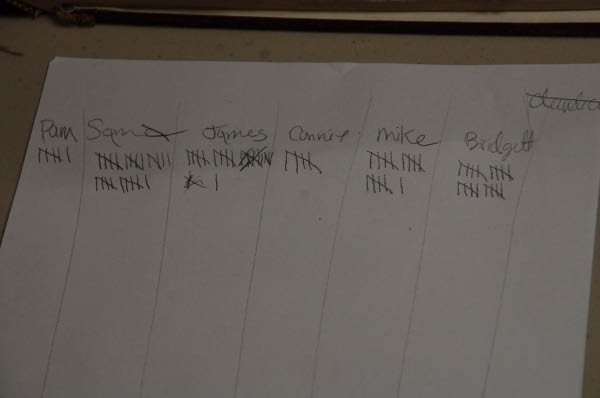 Pam Sam James Annie Mike Bridgett